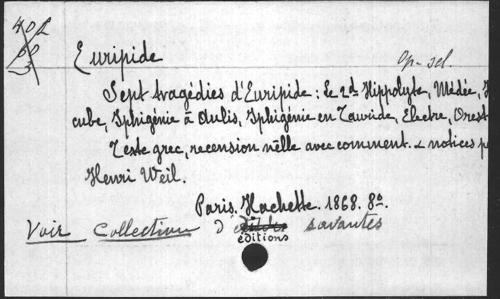 40 R
60
3
Euripide
Op. sel.
Sept tragédies d'Euripide: Le 2d. Hippolyte, Médée, H
cube, Iphigénie à Aulis, Iphigénie en Tauride, Electre, Orest
Texte grec, recension nlle avec comment. & notices p
Henri Weil.
Paris. Hachette. 1868. 8o.
Voir Collection d' savantes
éditions